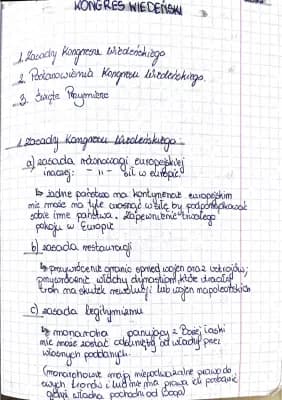 KONGRES WIEDEŃSKI
1. Zasady Kongresu Wiedeńskiego
2. Postanowienia Kongresu Wiedeńskiego.
3. Święte Przymierze
1. Zasady Kongresu Wiedeńskiego
a) zasada równowagi europejskiej
inaczej: - 11 - sił w europie.
↳ żadne państwo na kontynencie europejskim
nie może na tyle urosnąć w siłę by podporządkować
sobie inne państwa. Zapewnienie trwałego
pokoju w Europie
b) zasada restauracji
↳ przywrócenie granic sprzed wojen oraz ustrojów;
przywrócenie władzy dynastiom, które straciły
tron na skutek rewolucji lub wojen napoleońskich
c) zasada legitymizmu
↳ monarcha panujący z Bożej łaski
nie może zostać odsunięty od władzy przez
własnych poddanych.
(monarchowie mają niepodważalne prawo do
swych tronów i lud nie ma prawa ich pozbawić
gdyż władza pochodzi od Boga)